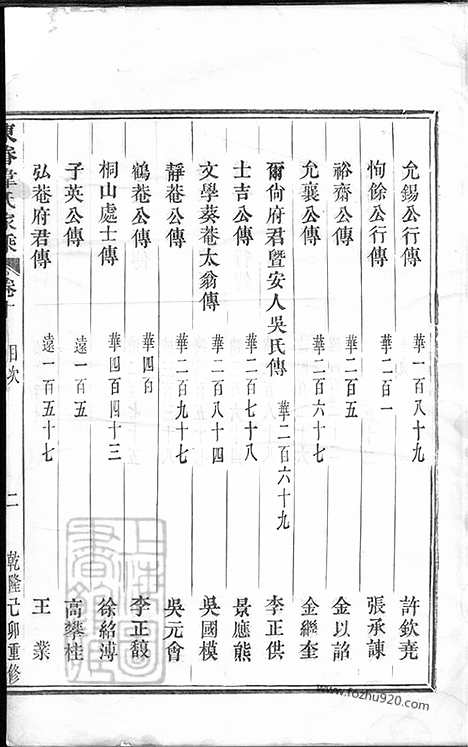 允錫公行傳 華一百八十九 許欽堯
恂餘公行傳 華二百一 張承諫
裕齋公傳 華二百五 金以韶
允襄公傳 華二百六十七 金繼奎
爾尚府君暨安人吳氏傳 華二百六十九 李正供
士吉公傳 華二百七十八 景應熊
文學葵菴太翁傳 華二百八十四 吳國模
靜菴公傳 華二百九十七 吳元會
鶴菴公傳 華四百 李正馥
桐山處士傳 華四百四十三 徐紹溥
子英公傳 遠一百五 高攀桂
弘菴府君傳 遠一百五十七 王業
東眷韋氏家乘 卷一 目次 二 乾隆己卯重修
www.fozhu920.com